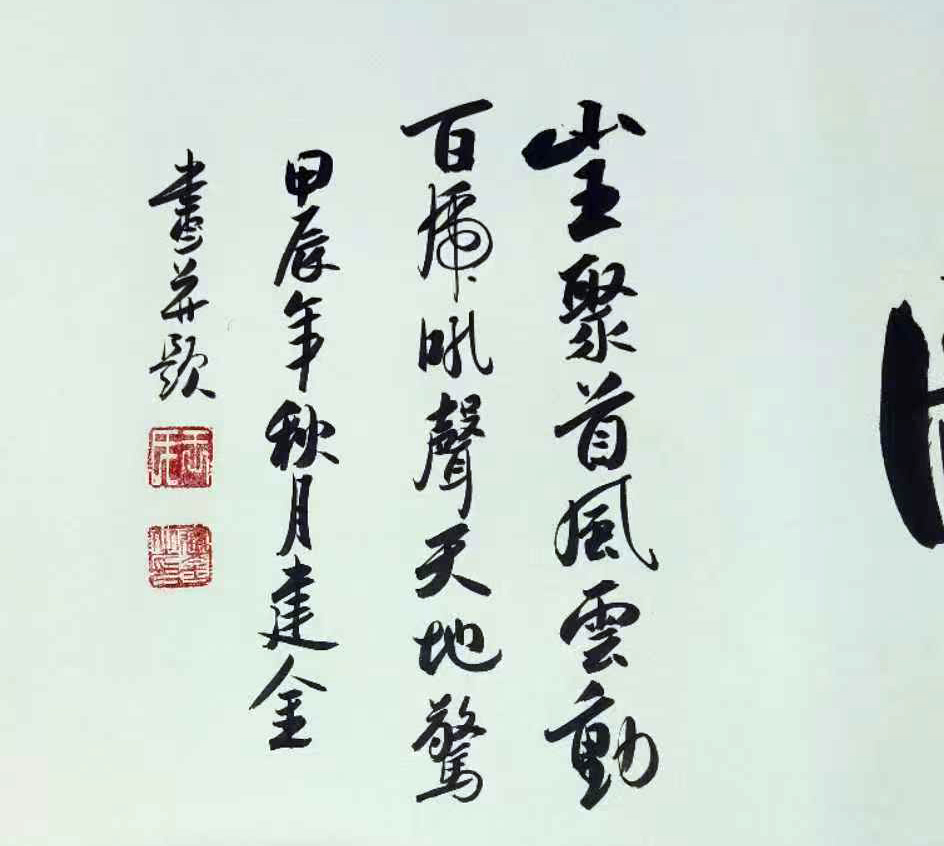 山王聚首風雲動
百虎吼聲天地驚
甲辰年秋月建金
書并題